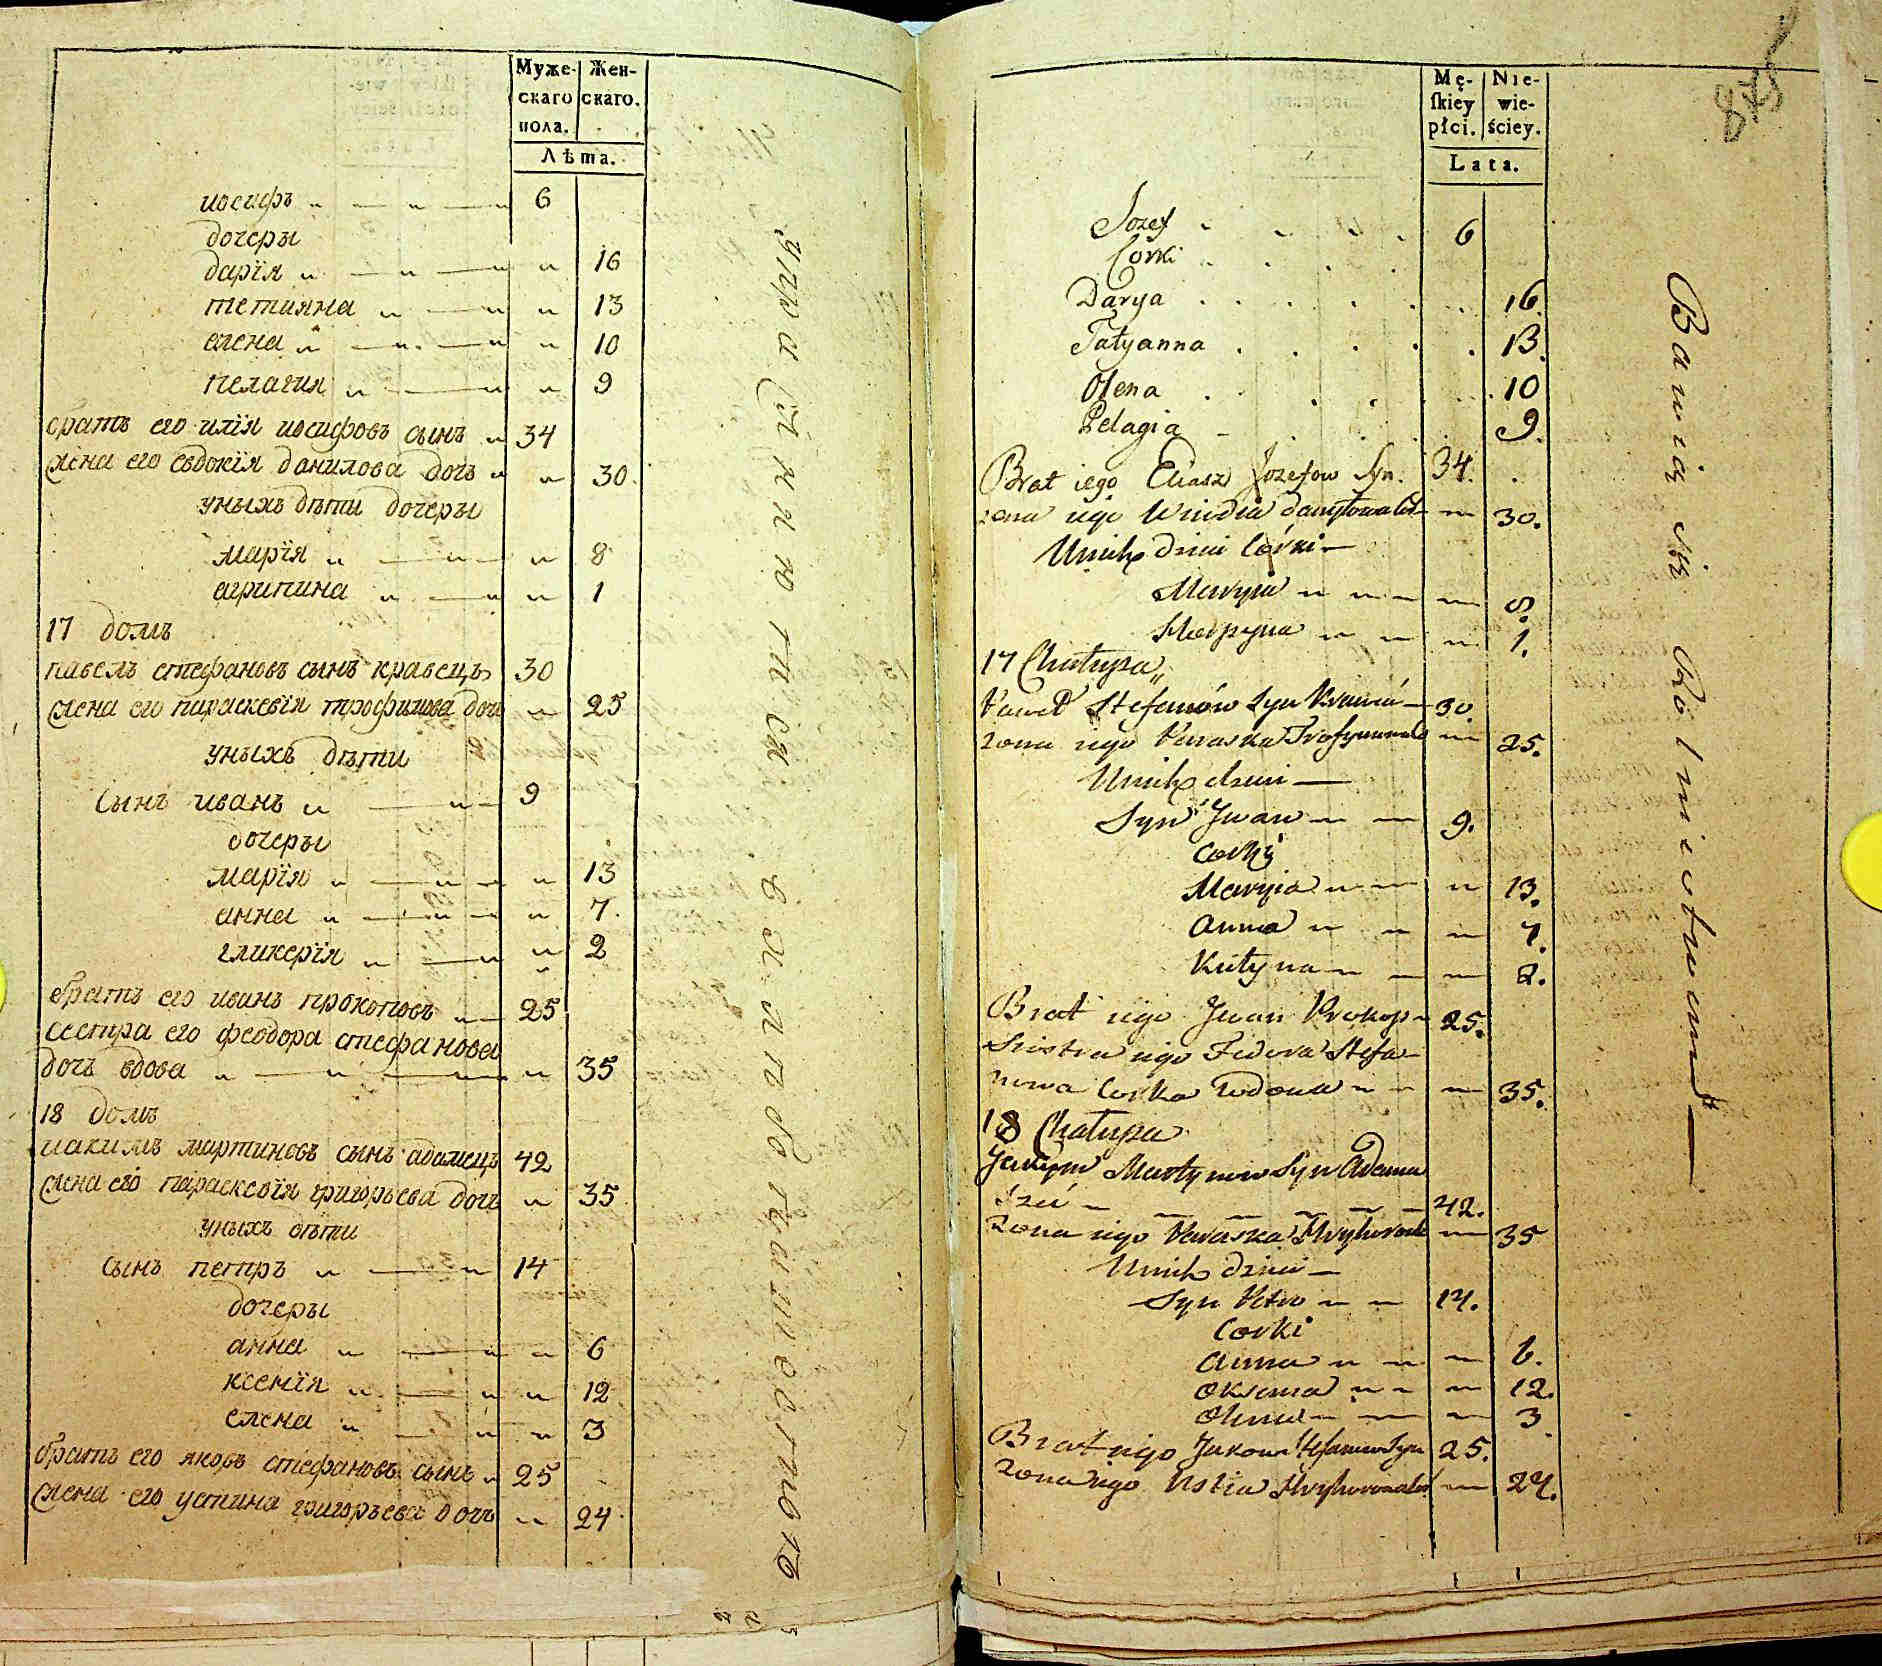 Муже- Жен-
скаго скаго.
пола.
Лѣта.
иосифъ 6
дочеры
дарїя 16
тетияна 13
елена 10
пелагия 9
братъ его илїя иосифовъ сынъ 34
жена его евдокїя данилова дочь 30.
уныхъ дѣти дочеры
марїя 8
агрипина 1
17 домъ
павелъ стефановъ сынъ кравецъ 30
жена его параскевїя трофимова дочь 25
уныхъ дѣти
сынъ иванъ 9
дочеры
марїя 13
анна 7.
гликерїя 2
братъ его иванъ прокоповъ 25
сестра его феодора стефанова
дочь вдова 35
18 домъ
иакимъ мартиновъ сынъ адамецъ 42
жена его параскевїя григорьева дочь 35
уныхъ дѣти
сынъ петръ 14
дочеры
анна 6
ксенїя 12
елена 3
братъ его яковъ стефановъ сынъ 25
жена его устина григорьева дочь 24
упражняютися в хлѣбопашествѣ
Mę- Nie-
skiey wie-
płci. ściey.
Lata.
875
Jozef 6
Corki
Darya 16.
Tatyanna 13.
Olena 10
Pelagia 9.
Brat iego Eliasz Jozefow Syn. 34.
zona iego Danyłowa 30.
Unich dzieci Corki
Maryia 8.
1.
17 Chałupa
Paweł Stefanów Syn Krawiec 30.
zona iego Paraska Trofymowa 25.
Unich dzieci
Syn Jwan 9.
Corki
Maryia 13.
Anna 7.
2.
Brat iego Jwan Prokop 25.
Siostra iego Fedora Stefa-
nowa Corka wdowa 35.
18 Chałupa
Jakym Martynow Syn Adama
42.
zona iego Paraska Hryhorowa 35
Unich dzieci
Syn Petro 14.
Corki
Anna 6.
Oksenia 12.
Olena 3
Brat iego Jakow Stefanow Syn 25.
zona iego Ustia 24.
Bawią się Rolnictwem